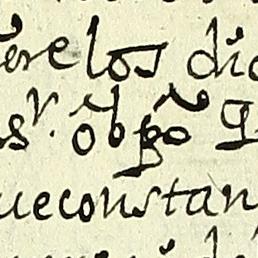 erelos dic
sʳ. obpõ q
ueconstan